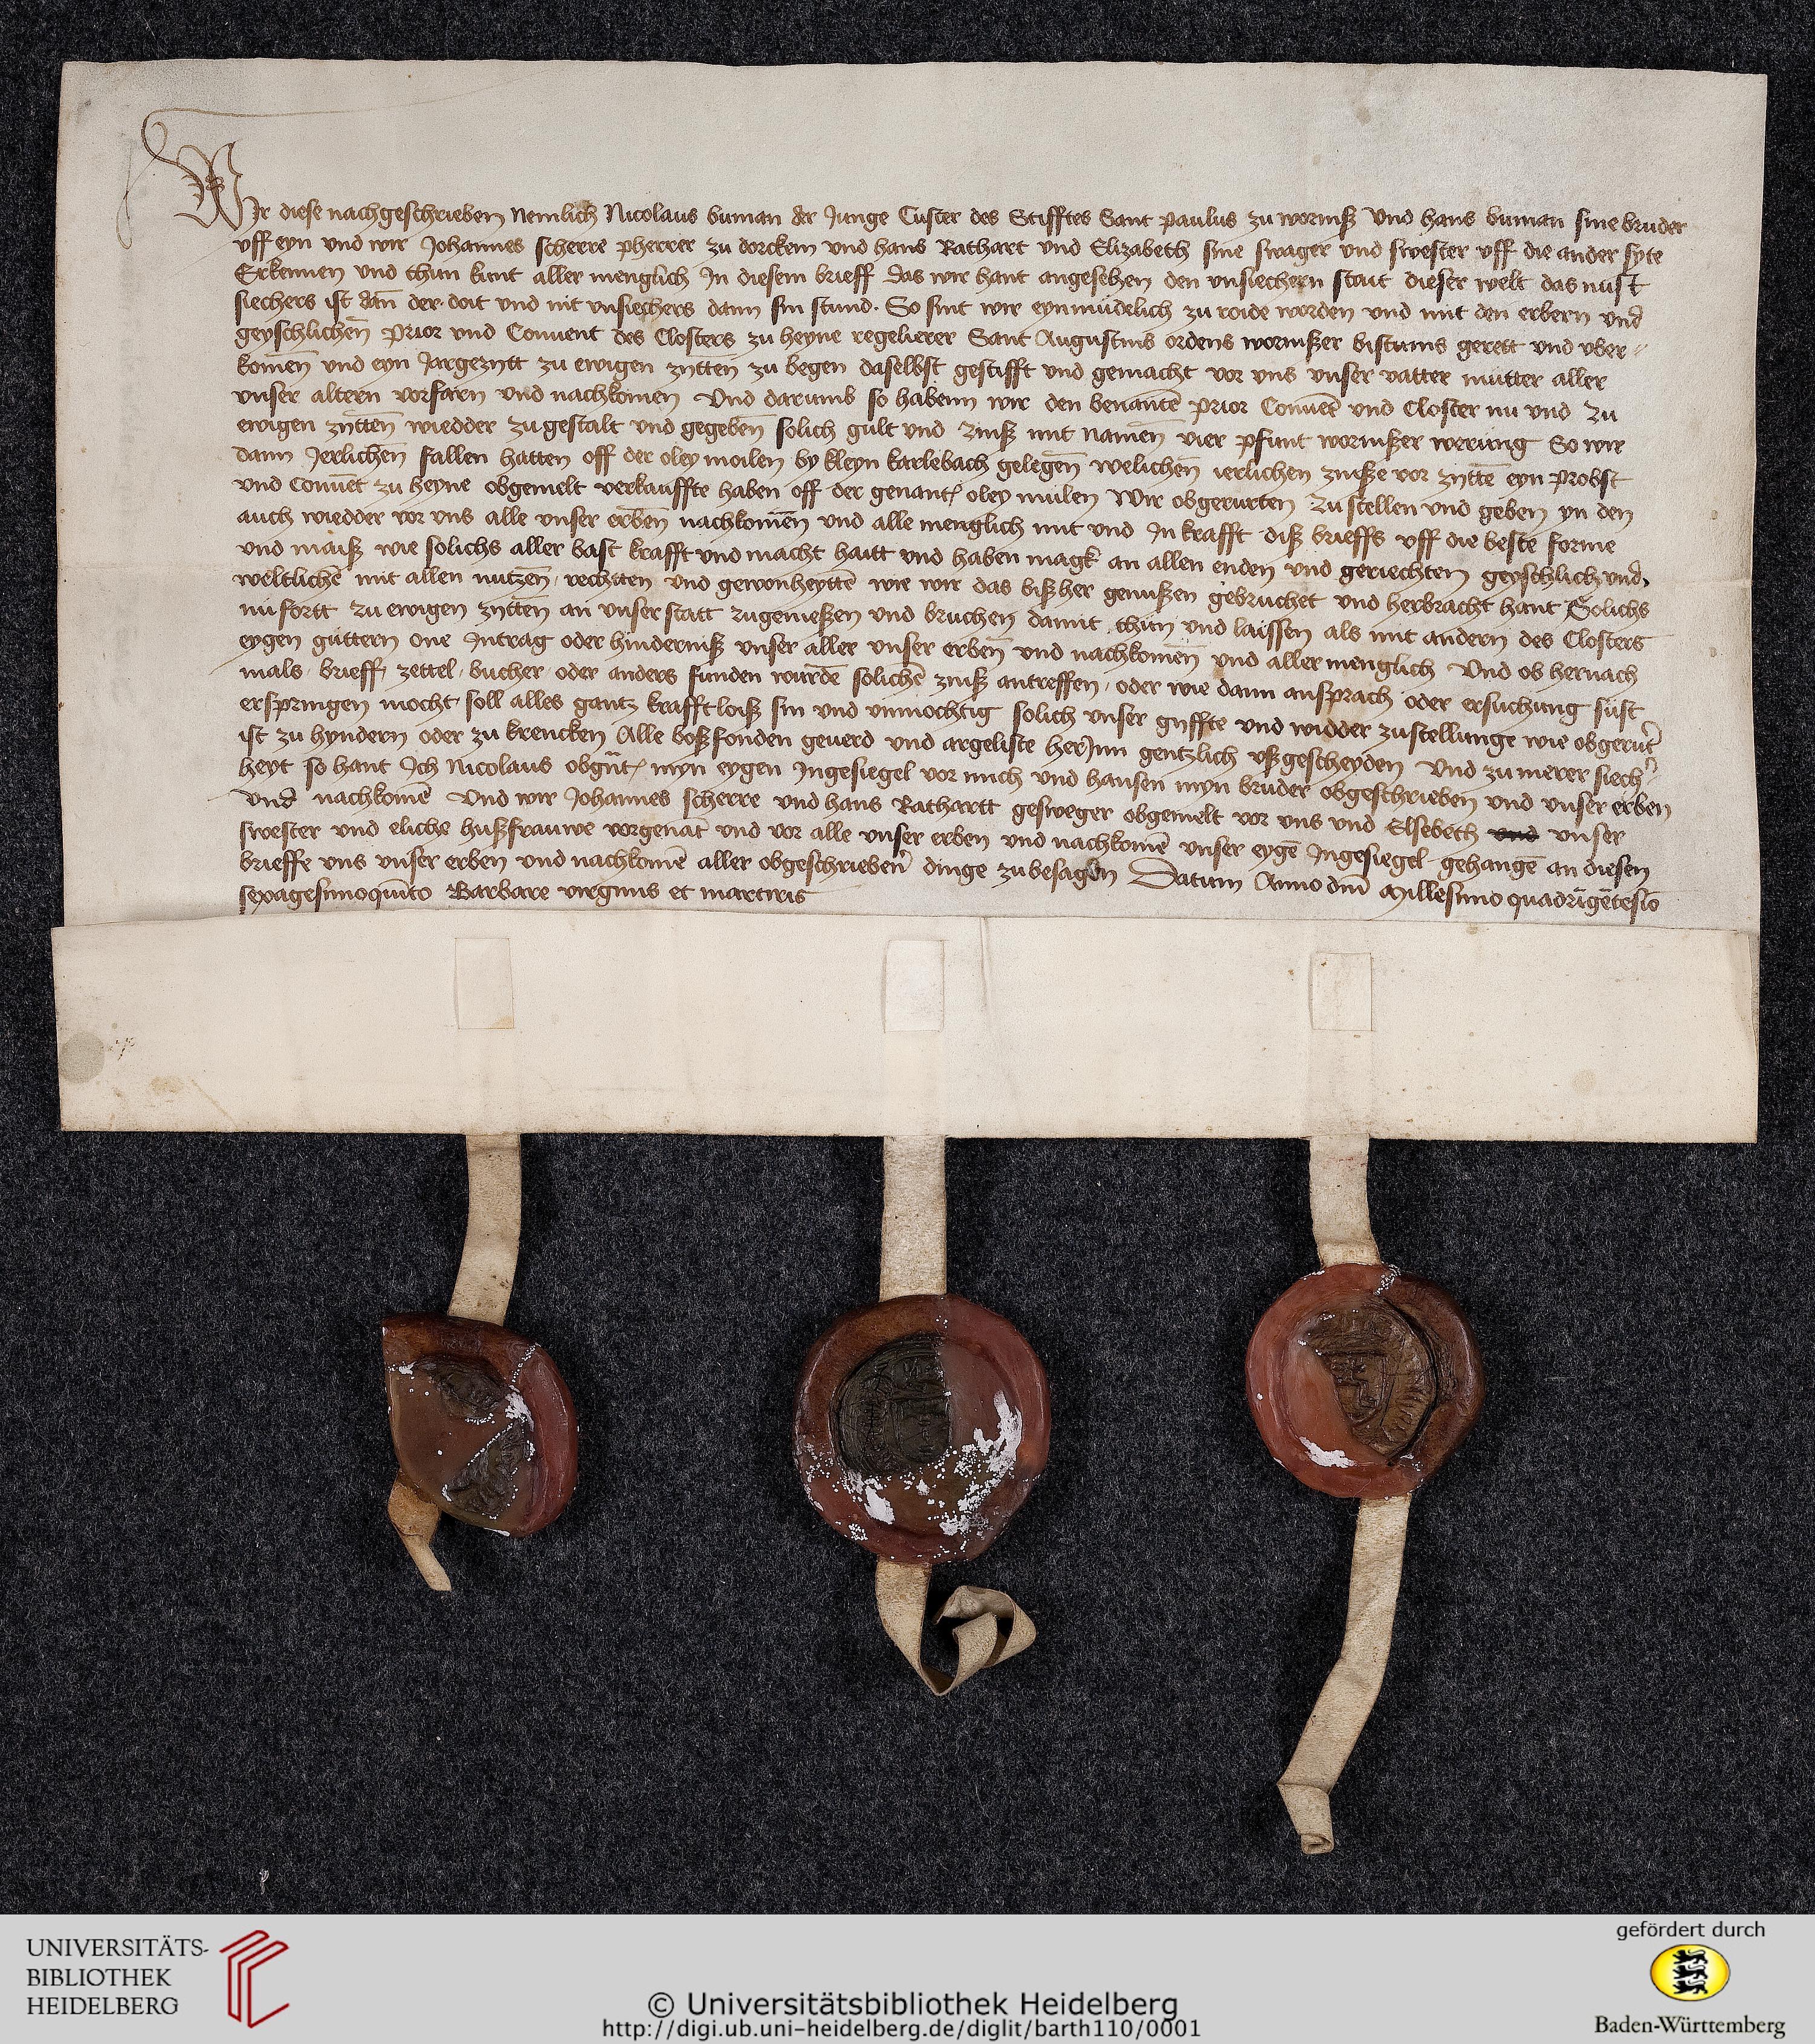 Wir diese nachgeschrieben nemlich Nicolaus buman der Junge Custer des Stifftes Sant paulus zu wormß Und hans buman sine bruder
vff eyn vnd wir Johannes scherre pherrer zu dorckem vnd hans Rathart vnd Elizabeth sine swager vnd swester vff die ander syte
Erkennen vnd thun kunt aller menglich In diesem brieff das wir hant angesehen den vnsiechern staut dieser welt das nust
siechers ist dan̄ der doit vnd nit vnsiechers dann sin stund. So sint wir eynmüdelich zu roide worden vnd mit den erbern vnd
geyschlichen̄ prior vnd Conuent des Closters zu heyne regelierer Sant Augustins ordens wormßer bistums gerett vnd vber-
komen̄ vnd eyn Jargezytt zu ewigen zytten̄ zu begen daselbst gestifft vnd gemacht vor vns vnser vatter mutter aller
vnser altern vorfarn vnd nachkomen Vnd darumb so habenn wir den benantē prior Conuēt vnd Closter nu vnd zu
ewigen zytten̄ wiedder zu gestalt vnd gegeben̄ solich gult vnd zinß mit namen̄ vier pfunt wormßer werung So wir
dann Jerlichen̄ fallen hatten off der oley moilen by kleyn karlebach gelegen̄ welichen̄ ierlichen zinße vor zyttē eyn probst
vnd Conuet zu heyne obgemelt verkauffte haben off der genant oley mulen Wir obgerurten zu stellen vnd geben yn den
auch wiedder vor vns alle vnser erben̄ nachkomen̄ vnd alle menglich mit vnd In krafft diß brieffs vff die beste forme
vnd maiß wie solichs aller bast krafft vnd macht haitt vnd haben magk an allen enden vnd geriechten geyschlich vnd
weltlichē mit allen nutzen̄ rechtten vnd gewonheyttē wie wir das bißher genußen gebruchet vnd herbracht hant Solichs
nu fortt zu ewigen zytten̄ an vnser statt zugenießen vnd bruchen damit thun vnd laissen als mit andern des Closters
eygen guttern one Intrag oder hinderniß vnser aller vnser erben̄ vnd nachkomen̄ vnd aller menglich Vnd ob hernach
mals brieff zettel bucher oder anders funden wurdē solichē zinß antreffen oder wie dann ansprach oder ersuchung sust
erspringen mocht soll alles gantz krafftloiß sin vnd vnmochtig solich vnser gyffte vnd widder zustellunge wie obgerut
ist zu hyndern oder zu krencken Alle boßfonden geuerd vnd argeliste herInn gentzlich vßgescheyden Vnd zu merer siech
heyt so hant Ich Nicolaus obgnt myn eygen Ingesiegel vor mich vnd hansen myn bruder obgeschrieben vnd vnser erben
vnd nachkomē Vnd wir Johannes scherre vnd hans Rathartt gesweger obgemelt vor vns vnd Elsebeth vnd vnser
swester vnd eliche hußfrauwe vorgenāt vnd vor alle vnser erben vnd nachkomē vnser eygē Ingesiegel gehangē an diesen
brieffe vns vnser erben vnd nachkomē aller obgeschrieben dinge zubesagen Datum Anno dm̄ Millesimo quadrīgētesīo
sexagesimoquīto Barbare virginis et martiris
UNIVERSITÄTS-
BIBLIOTHEK
HEIDELBERG
© Universitätsbibliothek Heidelberg
http://digi.ub.uni-heidelberg.de/diglit/barth110/0001
gefördert durch
Baden-Württemberg